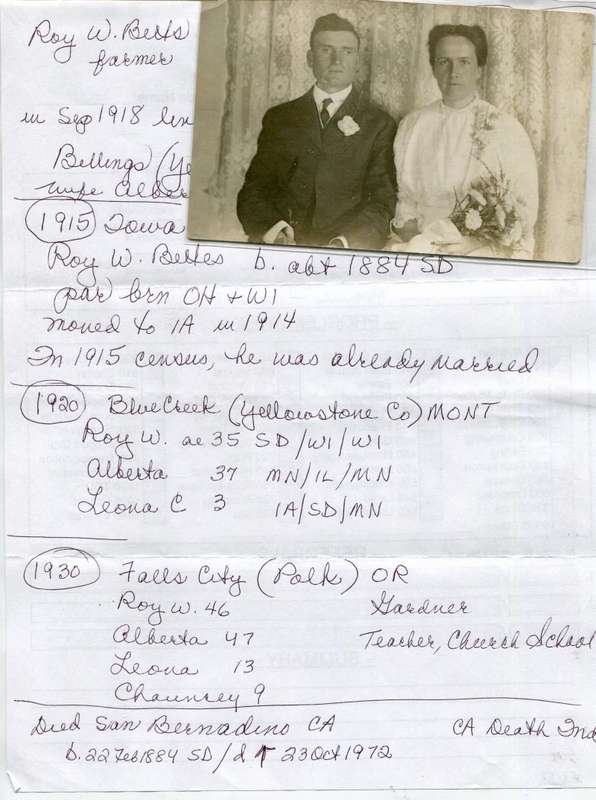 Roy W. Betts
farmer
in Sep 1918
Billings (Ye
wife Alber
1915 Iowa
Roy W. Bettes b. abt 1884 SD
par brn OH + WI
moved to IA in 1914
In 1915 census, he was already married
1920 Blue Creek (Yellowstone Co) MONT
Roy W. ae 35 SD/WI/WI
Alberta 37 MN/IL/MN
Leona C 3 IA/SD/MN
1930 Falls City (Polk) OR
Roy W. 46 Gardner
Alberta 47 Teacher, Church School
Leona 13
Chauncey 9
Died San Bernadino CA CA Death Ind
b. 22 Feb 1884 SD / d 23 Oct 1972